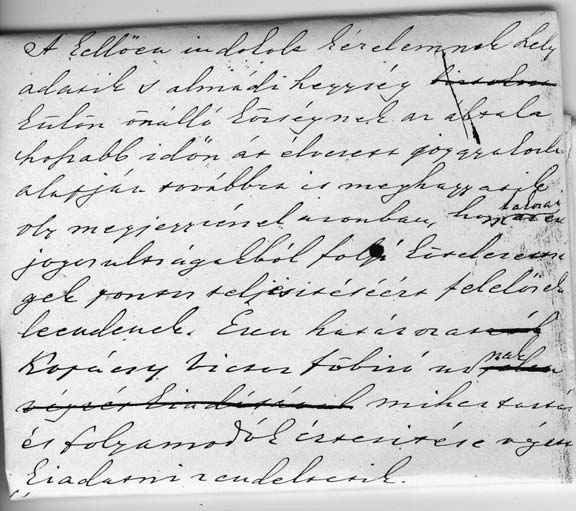 A kellően indokolt kérelemnek hely
adatik s almádi hegység
külön önálló községnek az általa
hosabb időn át élvezett joggyakorlat
alapján továbbra is meghagyatik
oly megjegyzéssel azonban, hogy
jogosultságakból folyó kötelezett
gek pontos teljesitéséért felelősek
leendenek. Ezen határozat
Kopácsy Victor főbiró urnak
mihez tartás
és folyamodók értesitése végett
kiadatni rendeltetik.